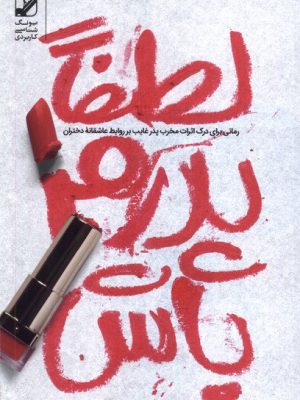 یونگ
شناسی
کاربردی
لطفاً
رمانی برای درک اثرات مخرب پدر غایب بر روابط عاشقانهٔ دختران
پدرم
باش